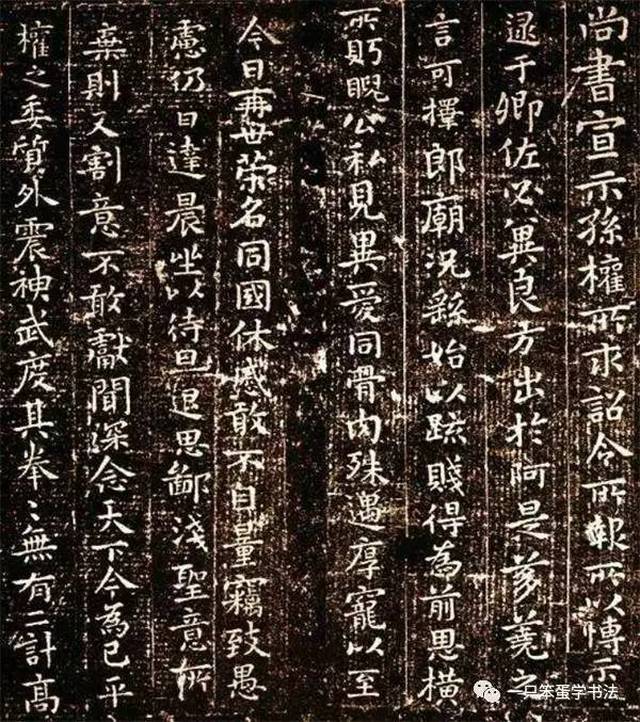 尚書宣示孫權所求詔令所報所以博示
逮于卿佐必冀良方出於阿是芻蕘之
言可擇郎廟況繇始以疏賤得為前思橫
所眄睨公私見異愛同骨肉殊遇厚寵以至
今日再世榮名同國休慼敢不自量竊致愚
慮仍日達晨坐以待旦退思鄙淺聖意所
棄則又割意不敢獻聞深念天下今為已平
權之委質外震神武度其拳〻無有二計高
一只笨蛋学书法